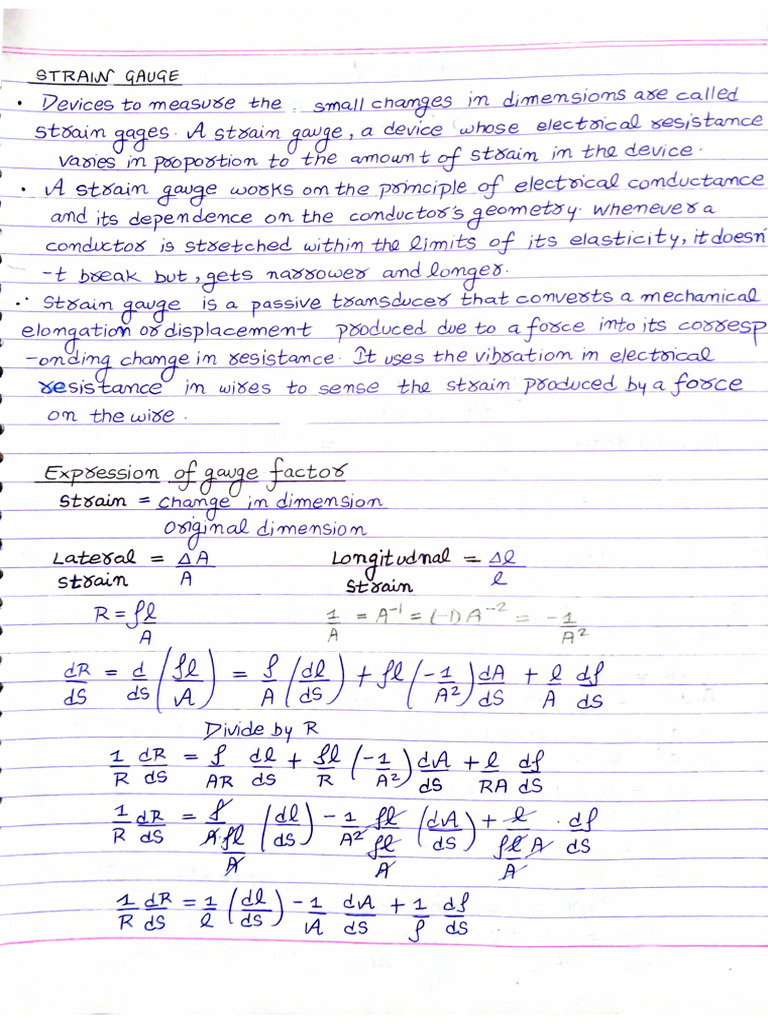 STRAIN GAUGE
• Devices to measure the small changes in dimensions are called
strain gages. A strain gauge, a device whose electrical resistance
varies in proportion to the amount of strain in the device.
• A strain gauge works on the principle of electrical conductance
and its dependence on the conductor's geometry. Whenever a
conductor is stretched within the limits of its elasticity, it doesn'
-t break but, gets narrower and longer.
∴ Strain gauge is a passive transducer that converts a mechanical
elongation or displacement produced due to a force into its corresp
-onding change in resistance. It uses the vibration in electrical
resistance in wires to sense the strain produced by a force
on the wire.
Expression of gauge factor
Strain = change in dimension / Original dimension
Lateral Strain = ΔA/A Longitudnal Strain = Δl/l
R = ρl/A 1/A = A⁻¹ = (-1)A⁻² = -1/A²
dR/dS = d/ds (ρl/A) = ρ/A (dl/dS) + ρl (-1/A²) dA/dS + l/A dρ/dS
Divide by R
1/R dR/dS = ρ/AR dl/dS + ρl/R (-1/A²) dA/dS + l/RA dρ/dS
1/R dR/dS = ρ/(A·ρl/A) (dl/dS) - 1/A² ρl/(ρl/A) (dA/dS) + l/(ρl A/A) · dρ/dS
1/R dR/dS = 1/l (dl/dS) - 1/A dA/dS + 1/ρ dρ/dS